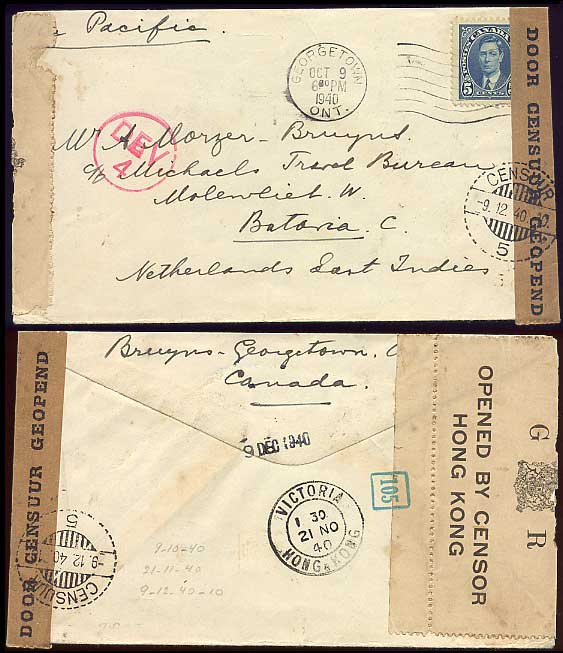 Pacific.
GEORGETOWN
OCT 9
6 30 PM
1940
ONT.
POSTES CANADA POSTAGE
5 CENTS 5
DOOR CENSUUR GEOPEND
DEV
4
Mr A. Morzer-Bruyns
c/o Michaels Travel Bureau
Molenvliet. W.
Batavia. C.
Netherlands East Indies
CENSUUR
-9.12.40
5
Bruyns-Georgetown, O
Canada.
9 DEC 1940
105
VICTORIA
1 30
21 NO
40
HONG KONG
9-10-40
21-11-40
9-12-40-10
DOOR CENSUUR GEOPEND
CENSUUR
-9.12.40
5
OPENED BY CENSOR
HONG KONG
G R